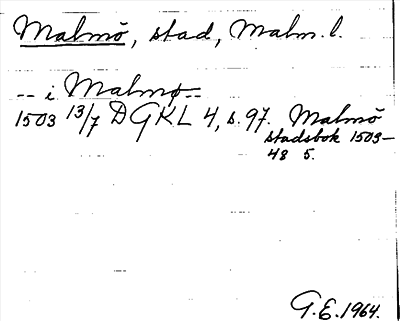 Malmö, stad, Malm. l.
-- i Malmø --
1503 13/7 DGKL 4, s. 97. Malmö
stadsbok 1503-
48 5.
G.E. 1964.